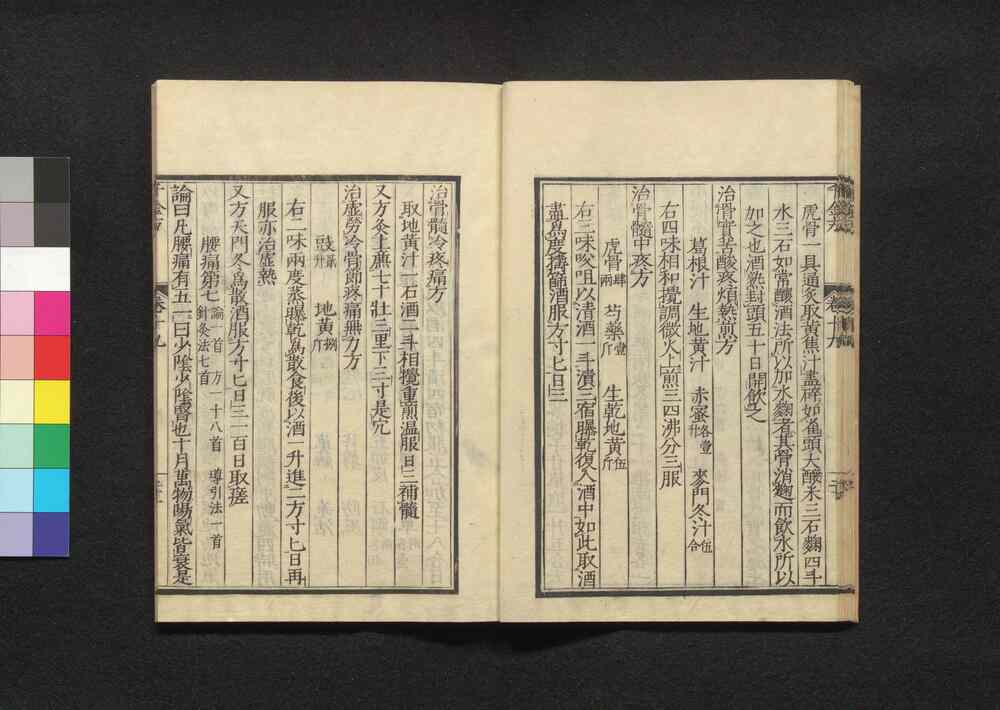 虎骨一具通炙取黃焦汁盡碎如雀頭大釀米三石麴四斗
水三石如常釀酒法所以加水麴者其骨消麴而飲水所以
如之也酒熟封頭五十日開飲之
治骨實苦酸疼煩熱煎方
葛根汁 生地黃汁 赤蜜各壹升 麥門冬汁伍合
右四味相和攪調微火上煎三四沸分三服
治骨髓中疼方
虎骨肆兩 芍藥壹斤 生乾地黃伍斤
右三味㕮咀以清酒一斗漬三宿曝乾復入酒中如此取酒
盡爲度擣篩酒服方寸匕日三
治骨髓冷疼痛方
取地黃汁一石酒二斗相攪重煎温服日三補髓
又方灸上廉七十壯三里下三寸是穴
治虛勞冷骨節疼痛無力方
豉貳升 地黃捌斤
右二味兩度蒸曝乾爲散食後以酒一升進二方寸匕日再
服亦治虛熱
又方天門冬爲散酒服方寸匕日三一百日取瘥
腰痛第七論一首 方一十八首 導引法一首 針灸法七首
論曰凡腰痛有五一曰少陰少陰腎也十月萬物陽氣皆衰是
千金方
卷十九